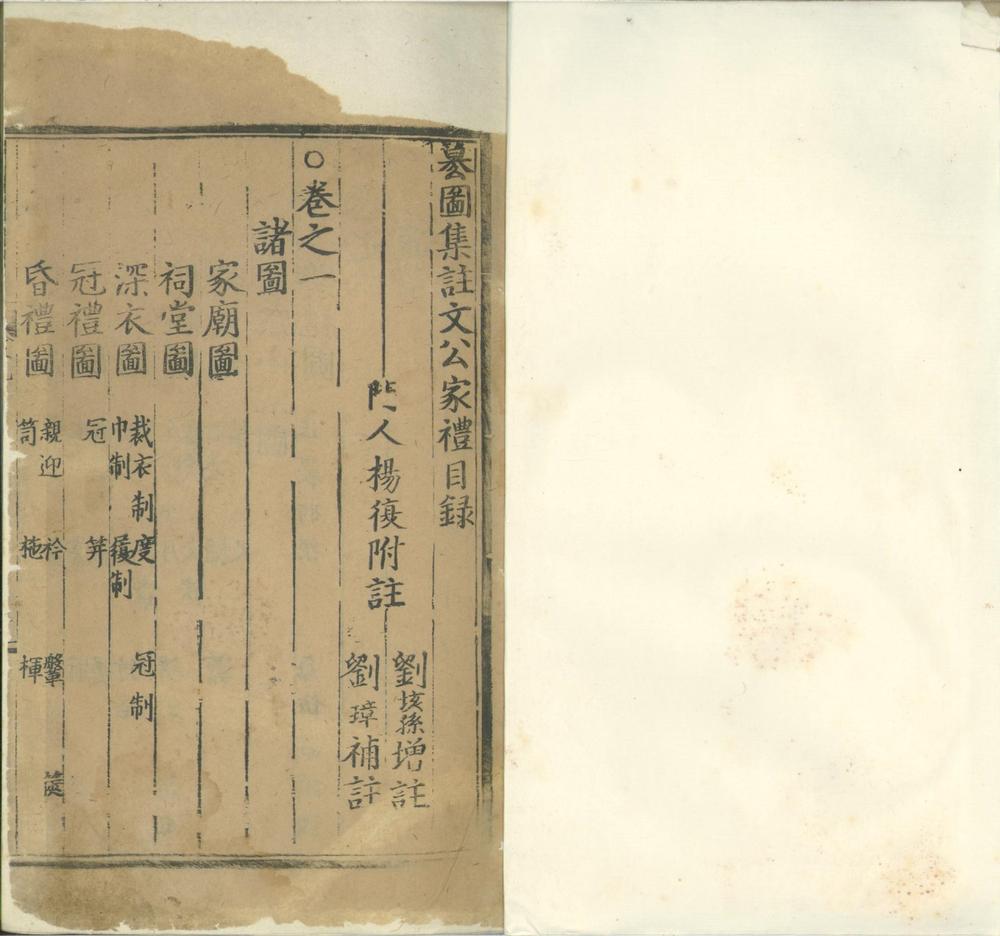 纂圖集註文公家禮目錄
門人楊復附註
劉垓孫增註
劉璋補註
○卷之一
諸圖
家廟圖
祠堂圖
深衣圖
裁衣制度 冠制
巾制 履制
冠禮圖
冠 笄
昏禮圖
親迎 衿 鞶 篋
笥 椸 楎